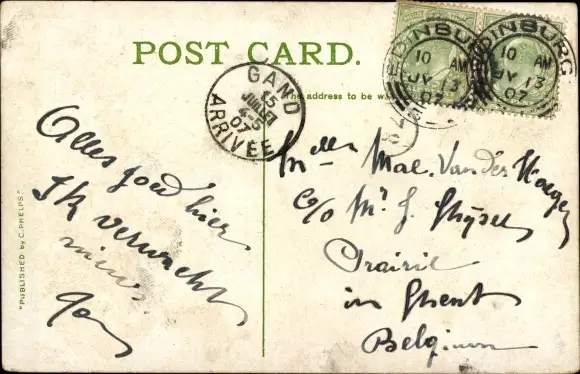 POST CARD.
The address to be
EDINBURG
10 AM
JY 13
07
EDINBURG
10 AM
JY 13
07
GAND
15
JUIL
4-5
07
ARRIVÉE
Alles goed hier
Ik verwacht
nieuws
"PUBLISHED by C. PHELPS"
Melle Mac. Van der Haegen
c/o Mr J.
Prairie
in Ghent
Belgium